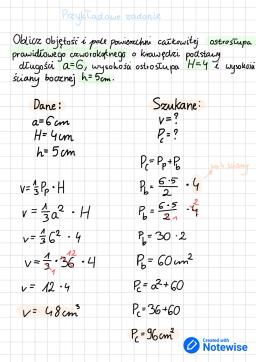 Przykładowe zadanie
Oblicz objętość i pole powierzchni całkowitej ostrosłupa
prawidłowego czworokątnego o krawędzi podstawy
długości a=6, wysokości ostrosłupa H=4 i wysokości
ściany bocznej h=5cm.
Dane:
a=6cm
H=4cm
h=5cm
Szukane:
v=?
Pc=?
Pc=Pp+Pb
v=⅓Pp·H
v=⅓a²·H
v=⅓6²·4
v=⅓·36·4
1 12
v=12·4
v=48cm³
Pb=6·5/2·4
Pb=6·5/2·4
1 2
Pb=30·2
Pb=60cm²
Pc=a²+60
Pc=36+60
Pc=96cm²
Created with
Notewise